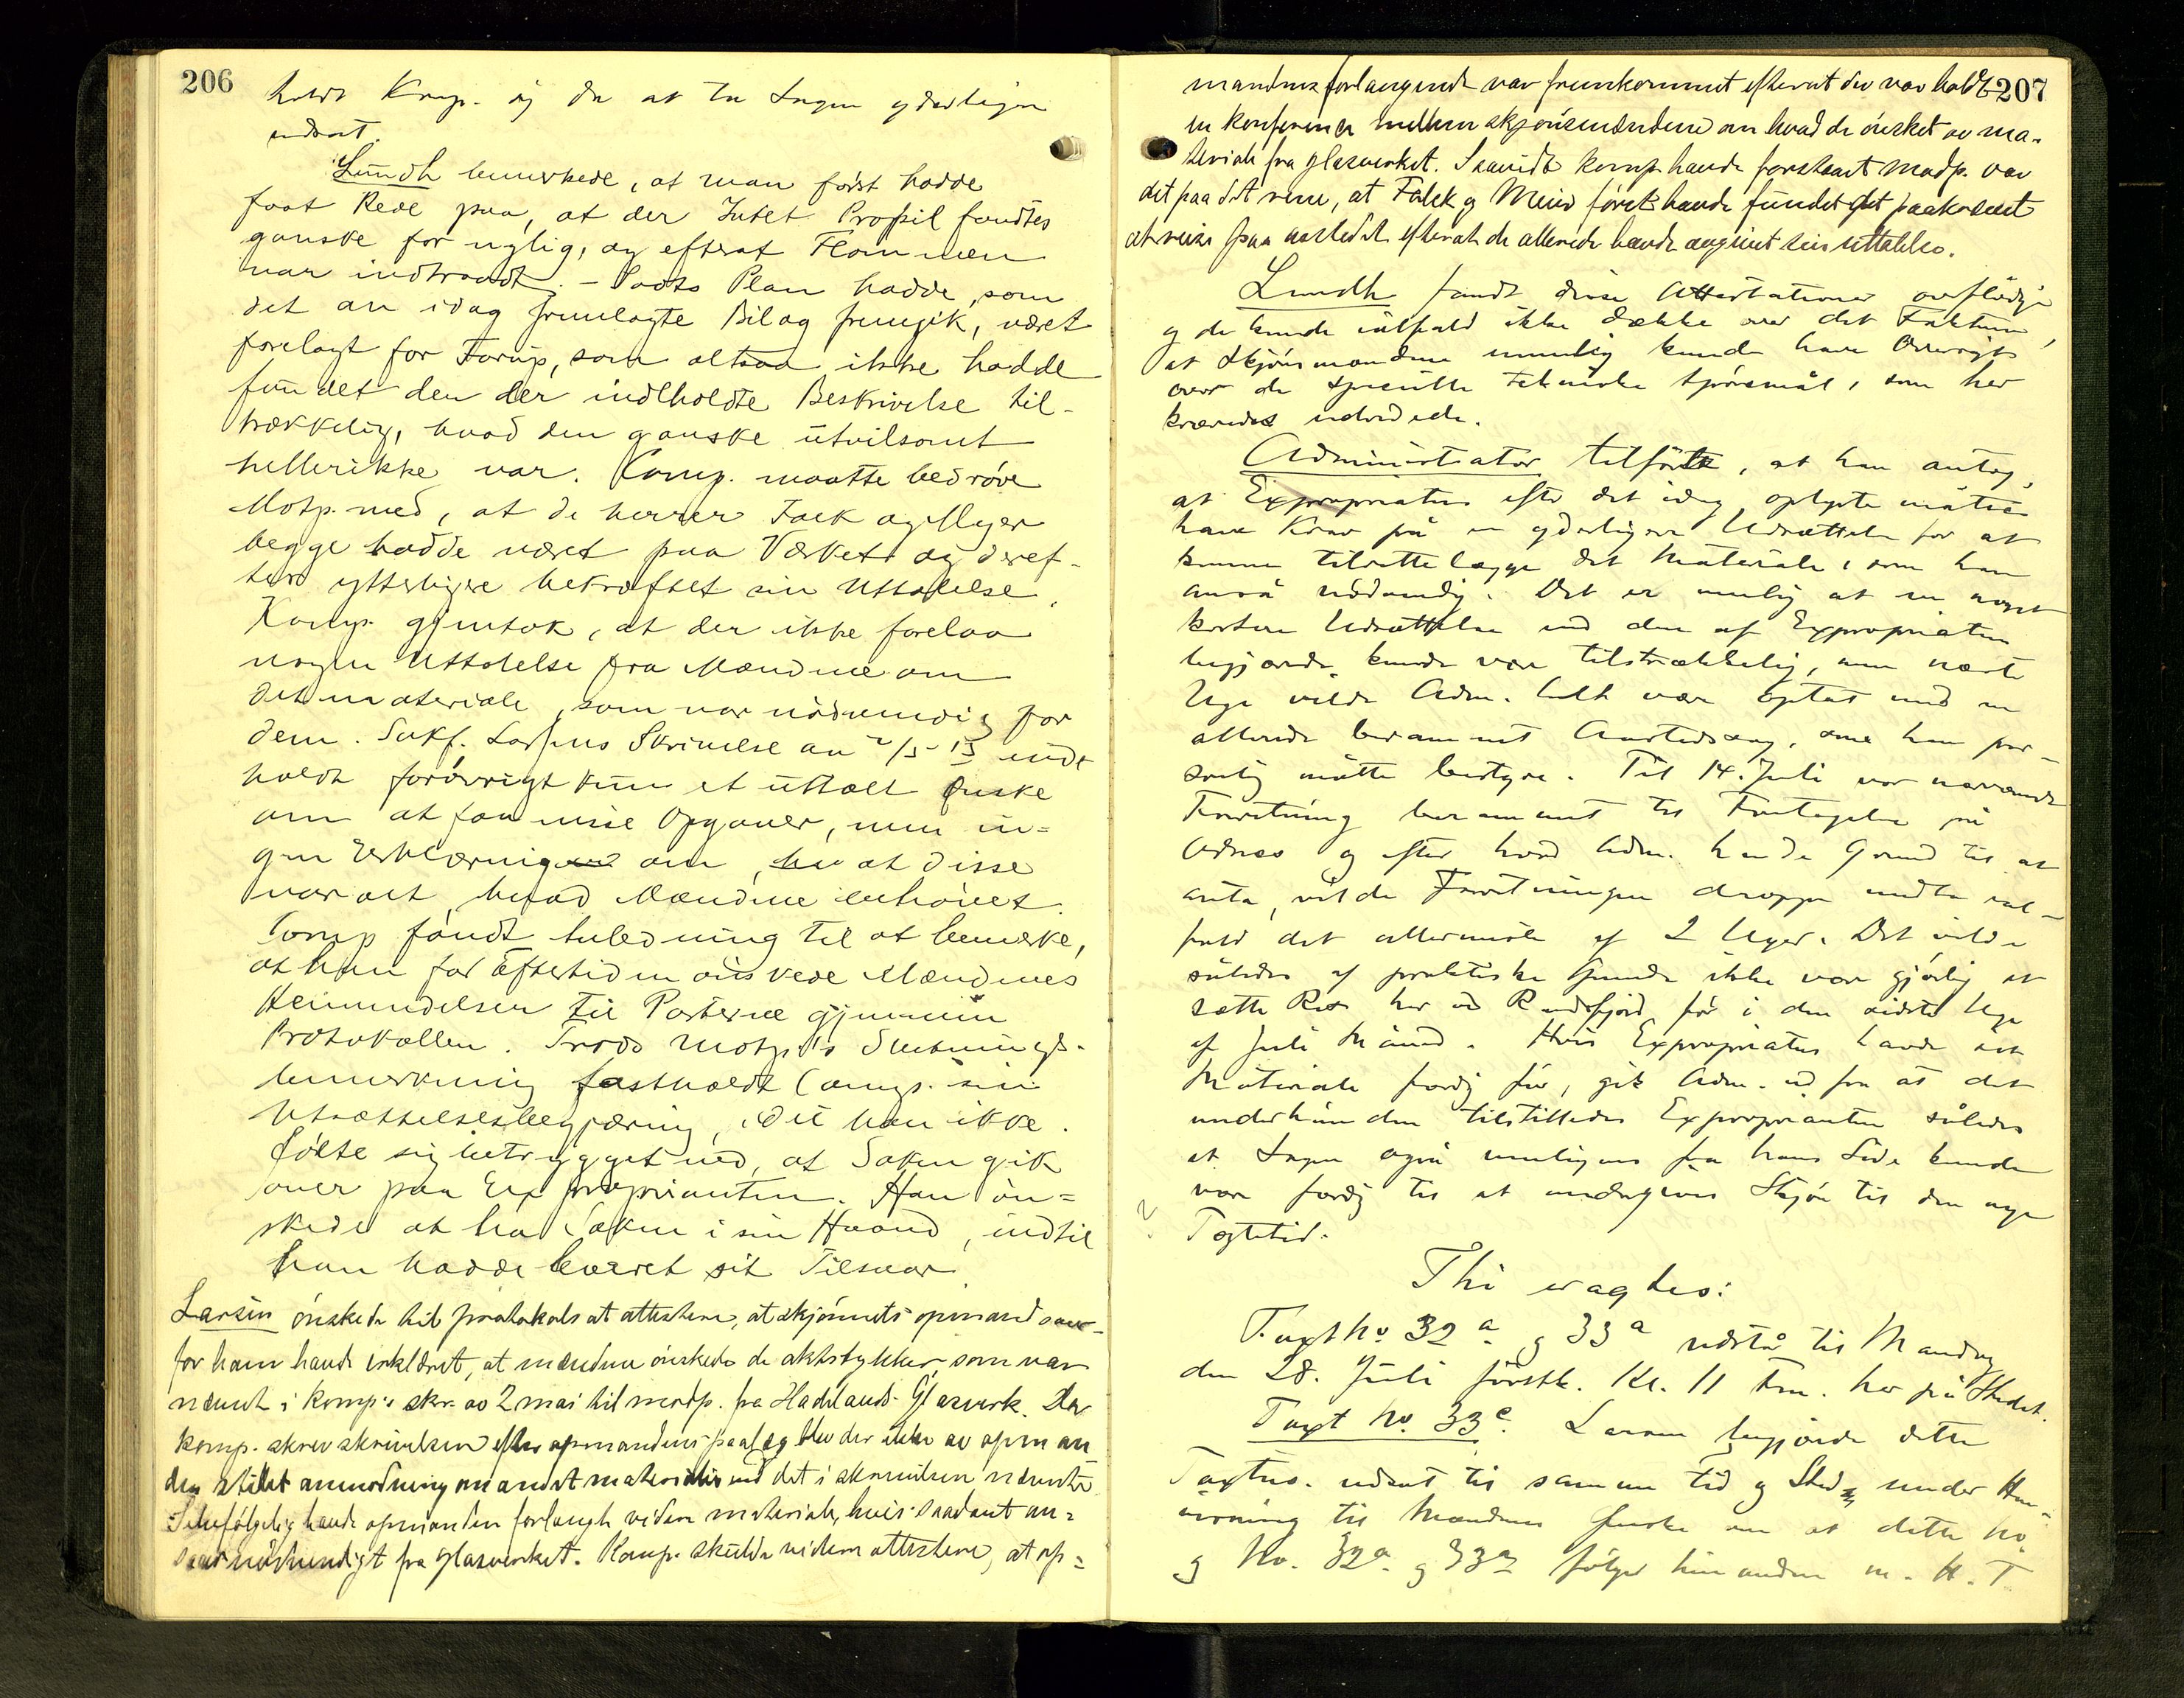 206
holdt Komp. sig da at ta Sagen yderligere
udsat.
Lundh bemerkede, at man først hadde
faat Rede paa, at der Intet Profil fandtes
ganske for nylig, og efterat Flommen
var indtraadt. - Saots Plan hadde, som
det av idag fremlagte Bilag fremgik, været
forelagt for Torup, som altsaa ikke hadde
fundet den der indholdte Beskrivelse til-
trækkelig, hvad den ganske utvilsomt
hellerikke var. Comp. maatte bedrøve
Motp. med, at de herrer Falck og Meyer
begge hadde været paa Værket og deref-
ter ytterligere bekræftet sin Uttalelse.
Komp. gjentok, at der ikke forelaa
nogen Uttalelse fra Mændene om
det materiale, som var nødvendig for
dem. Sakf. Larsens Skrivelse av 2/5-13 inde
holdt forøvrigt kun et uttalt Ønske
om at faa visse Opgaver, men in-
gen Erklæring om, at disse
var alt, hvad Mændene behøvet.
Comp fandt Anledning til at bemerke,
at han for Eftertiden ønskede Mændenes
Henvendelser til Parterne gjennem
Protokollen. Trods Motp.'s Slutnings-
bemerkning fastholdt Comp. sin
Utsættelsesbegjæring, idet han ikke
følte sig betrygget ved, at Saken gik
over paa Exproprianten. Han øn-
skede at ha Saken i sin Haand, indtil
han hadde leveret sit Tilsvar.
Larsen ønskede til protokols at attestere, at skjønnets opmand over-
for ham havde erklæret, at mændene ønskede de aktstykker som var
nævnt i komp's skr. av 2 mai til modp. fra Hadelands Glasverk. Da
komp. skrev skrivelsen efter opmandens paalæg blev der ikke av opman
den stillet anmodning om andet materiale end det i skrivelsen nævnte.
Selvfølgelig havde opmanden forlangt videre materiale, hvis saadant an-
saaes nødvendigt fra glasverket. Komp. skulde videre attestere, at op-
207
mandens forlangende var fremkommet efterat der var holdt
en konference mellem skjønsmændene om hvad de ønsket av ma-
teriale fra glasverket. Saavidt komp. havde forstaaet modp. var
det paa det rene, at Falck og Meier først havde fundet det paakrævet
at reise paa aastedet efterat de allerede havde avgivet sin uttalelse.
Lundh fandt disse Attestationer overflødige
og de kunde ialfald ikke dække over det Faktum,
at Skjønsmændene umulig kunde have Oversigt
over de specielle tekniske Spørsmål, som her
krævedes udredede.
Administrator tilførte, at han antog,
at Expropriaten efter det idag oplyste måtte
have Krav på en yderligere Udsættelse for at
kunne tilrettelægge det Materiale, som han
anså nødvendig. Det er mulig at en noget
kortere Udsættelse end den af Expropriaten
begjærede kunde være tilstrækkelig, men næste
Uge vilde Adm. helt være optat med en
allerede berammet Aastedssag, som han per-
sonlig måtte bestyre. Til 14. Juli var nærværende
Forretning berammet til Foretagelse på
Odnæs og efter hvad Adm. havde Grund til at
anta, vilde Forretningen deroppe medta ial-
fald det allermeste af 2 Uger. Det vilde
således af praktiske Grunde ikke være gjørlig at
sætte Ret her ved Randsfjord før i den sidste Uge
af Juli Måned. Hvis Expropriaten havde sit
Materiale færdig før, gik Adm. ud fra at det
underhånden tilstilledes Exproprianten således
at Sagen også muligens fra hans Side kunde
være færdig til at undergives Skjøn til den nye
Tægtetid.
Thi eragtes:
Taxt No 32 a og 33 a udstå til Mandag
den 28. Juli førstk. Kl. 11 Fm. her på Stedet.
Taxt No. 33 c. Larsen begjærede dette
Taxtno. udsat til samme Tid og Sted under Hen-
visning til Mændenes Ønske om at dette No.
og No. 32 a og 33 a følger hinanden m. H. T.